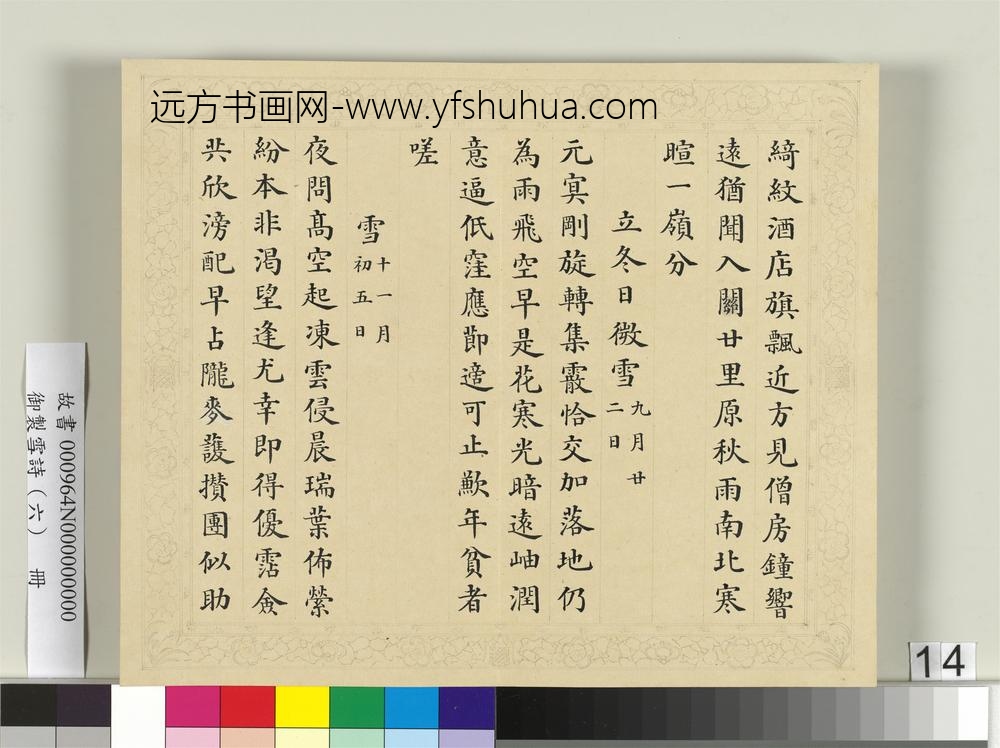 远方书画网-www.yfshuhua.com
綺紋酒店旗飄近方見僧房鐘響
遠猶聞入關廿里原秋雨南北寒
暄一嶺分
立冬日微雪九月廿二日
元寅剛旋轉集霰恰交加落地仍
為雨飛空早是花寒光暗遠岫潤
意逼低窪應節適可止歉年貧者
嗟
雪十一月初五日
夜問髙空起凍雲侵晨瑞葉佈縈
紛本非渴望逢尤幸即得優霑僉
共欣滂配早占隴麥䕶攢團似助
故書 000964N000000000
御製雪詩(六) 冊
14